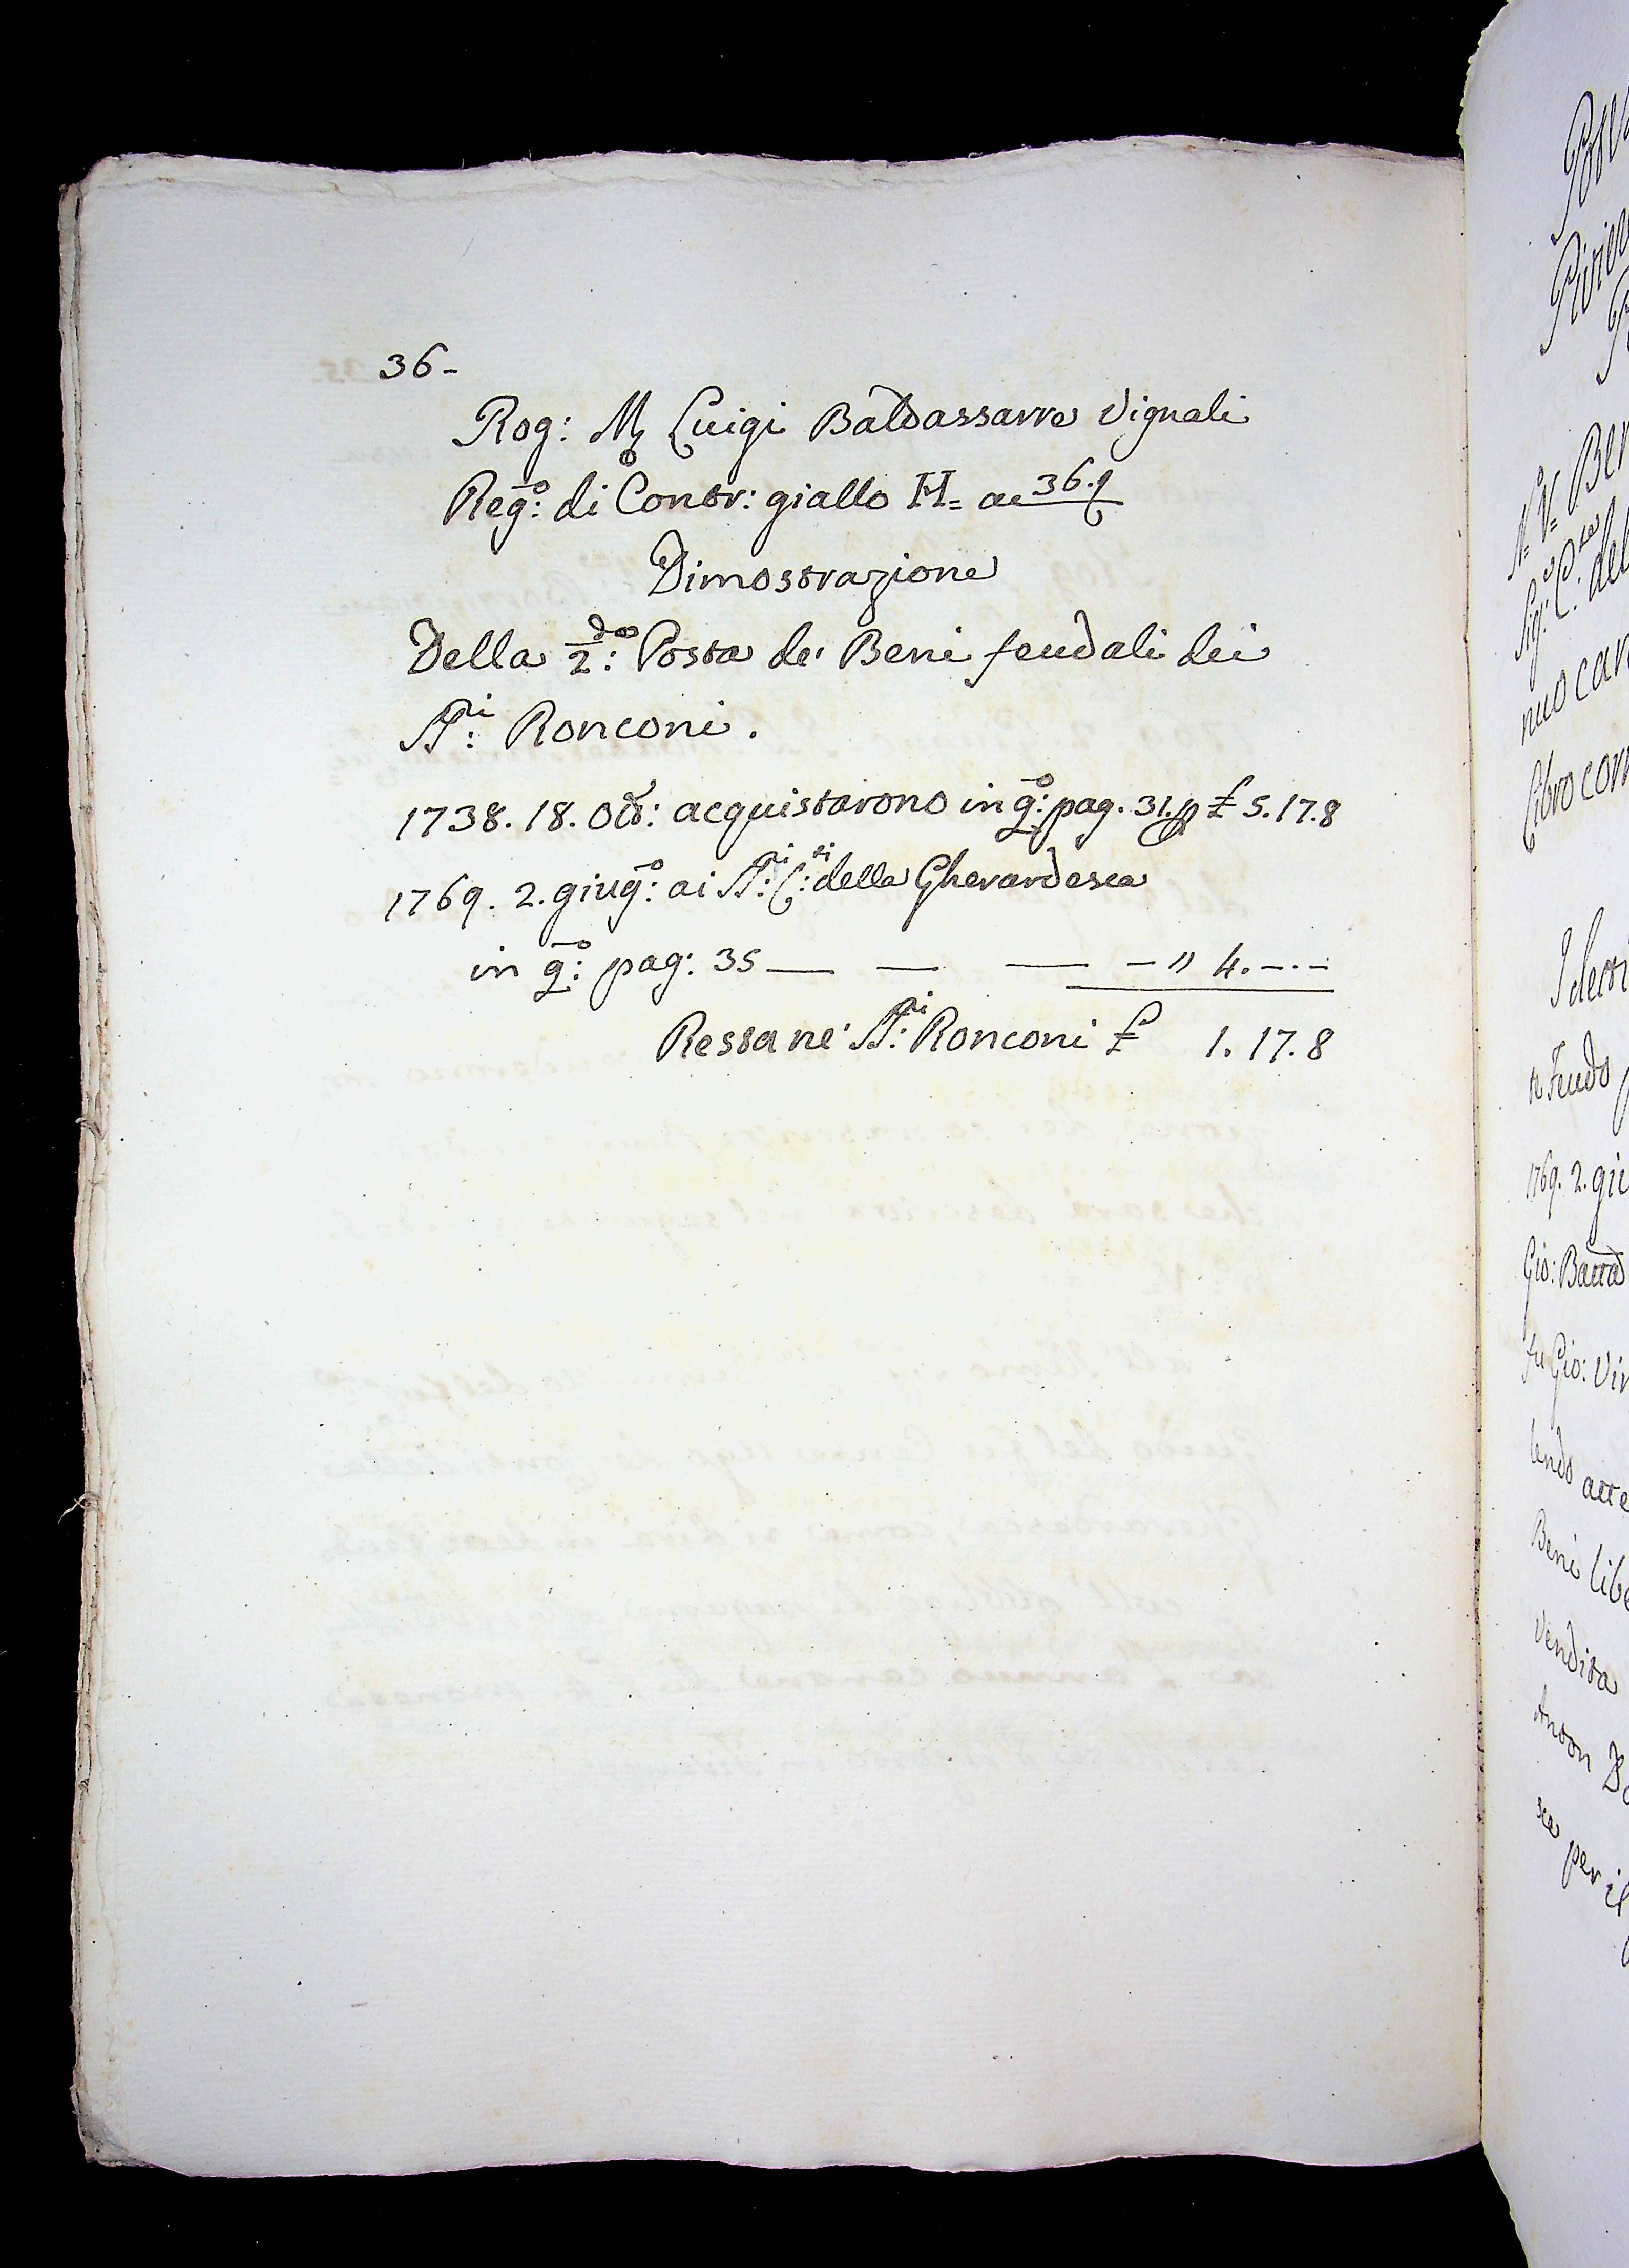 36-
Rog: M.o Luigi Baldassarre Vignali
Reg:o di Contr: giallo H= a 36.
Dimostrazione
Della 2:da Posta de' Beni feudali dei
SS:ri Ronconi.
1738. 18. Ott: acquistarono in q:o pag. 31. p £ 5.17.8
1769. 2. giug:o ai SS:ri C:ti della Gherardesca
in q:o pag: 35 — — — — " 4.-.-
Resta ne' SS:ri Ronconi £ 1. 17. 8
N= V= Ber
nuo can
Libro con
I detti
Feudo
1769. 2. giu
Gio: Batta
fu Gio: Vin
Beni libe
Vendita
Anton
per il